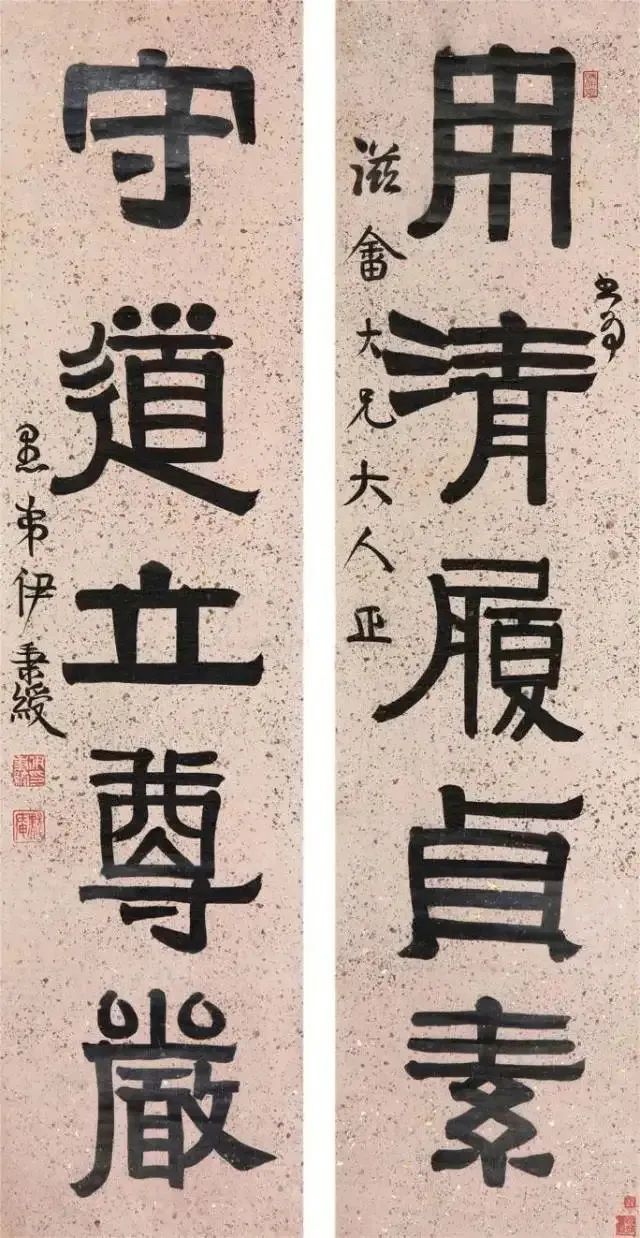 用清履貞素
滋畬大兄大人正
守道立尊嚴
愚弟伊秉綬